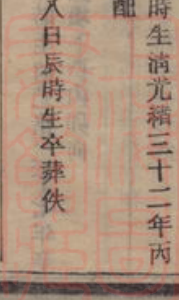 時生清光緒三十二年丙
配
八日辰時生卒葬佚